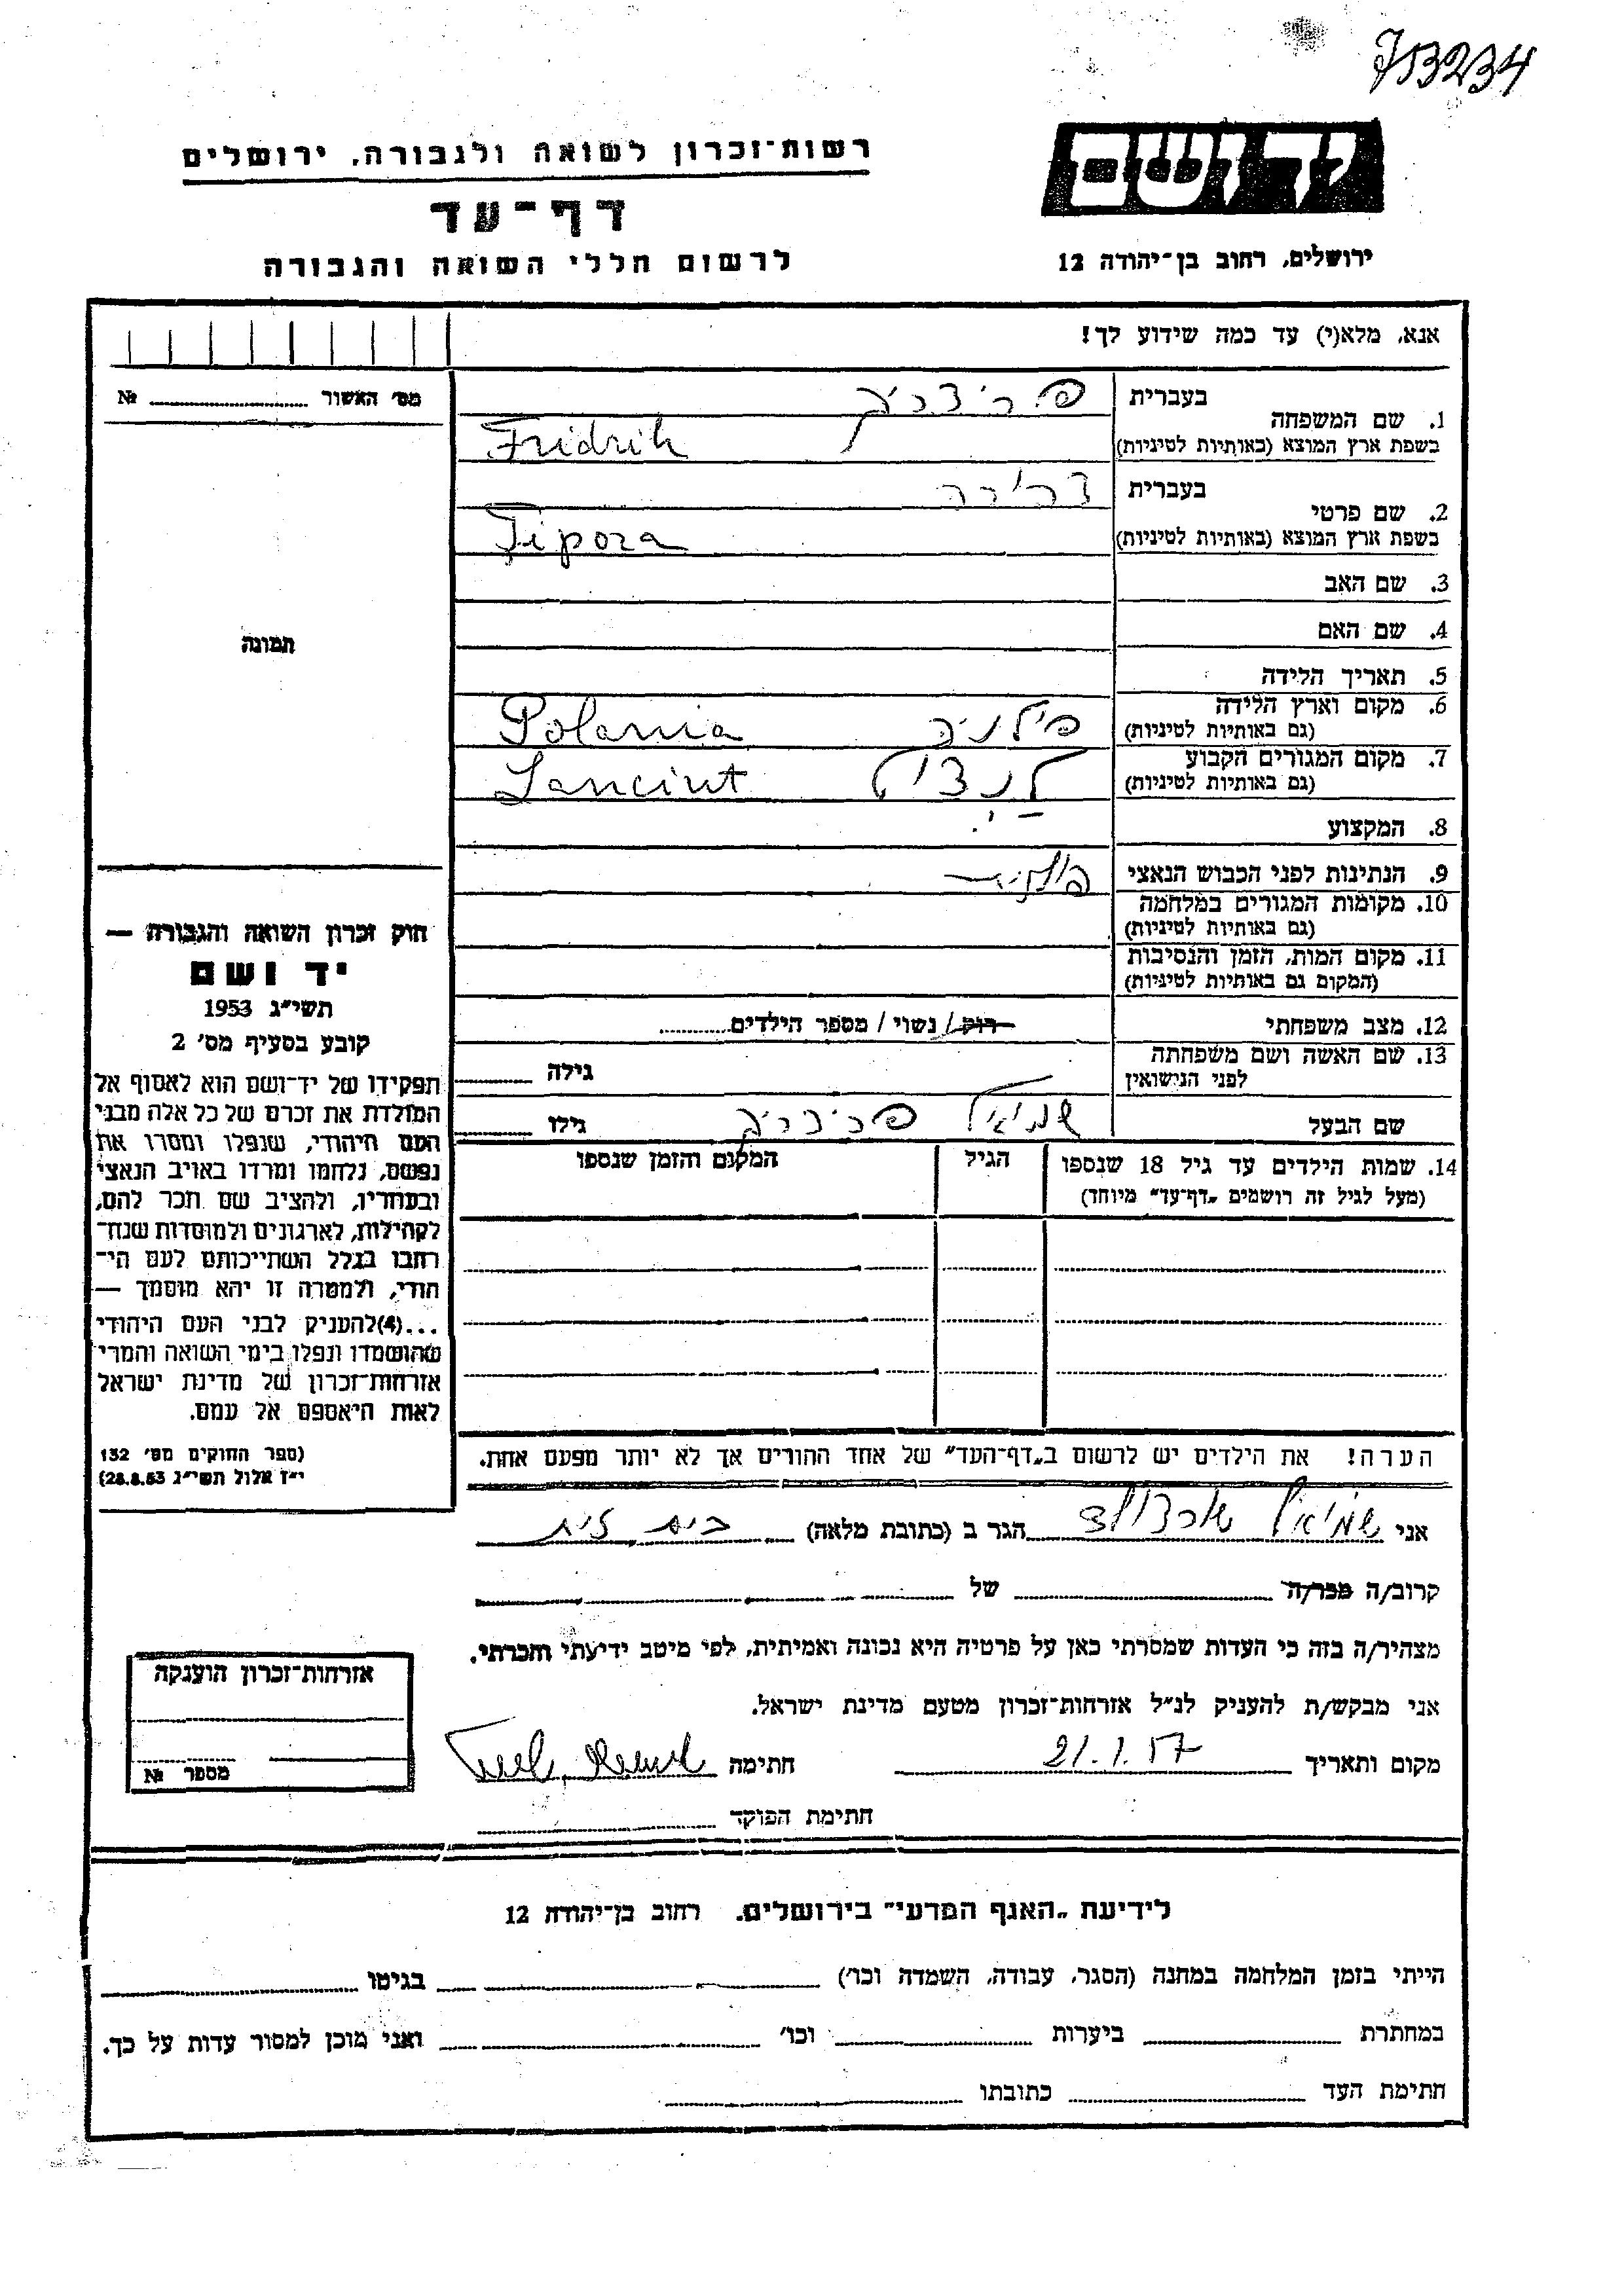 753234
יד ושם
רשות־זכרון לשואה ולגבורה, ירושלים
דף־עד
לרשום חללי השואה והגבורה
ירושלים, רחוב בן־יהודה 12
אנא, מלא(י) עד כמה שידוע לך!
מס׳ האשור № 
1. שם המשפחה
בעברית פרידריך
בשפת ארץ המוצא (באותיות לטיניות) Fridrih
2. שם פרטי
בעברית
בשפת ארץ המוצא (באותיות לטיניות) Tipora
3. שם האב
4. שם האם
תמונה
5. תאריך הלידה
6. מקום וארץ הלידה
(גם באותיות לטיניות) Polania
7. מקום המגורים הקבוע
(גם באותיות לטיניות) Lanciut
8. המקצוע
9. הנתינות לפני הכבוש הנאצי
10. מקומות המגורים במלחמה
(גם באותיות לטיניות)
11. מקום המות, הזמן והנסיבות
(המקום גם באותיות לטיניות)
12. מצב משפחתי רווק / נשוי / מספר הילדים
13. שם האשה ושם משפחתה
לפני הנישואין גילה
שם הבעל שמואל פרידריך גילו
14. שמות הילדים עד גיל 18 שנספו הגיל המקום והזמן שנספו
(מעל לגיל זה רושמים „דף־עד״ מיוחד)
חוק זכרון השואה והגבורה —
יד ושם
תשי״ג 1953
קובע בסעיף מס׳ 2
תפקידו של יד־ושם הוא לאסוף אל
המולדת את זכרם של כל אלה מבני
העם היהודי, שנפלו ומסרו את
נפשם, נלחמו ומרדו באויב הנאצי
ובעוזריו, ולהציב שם וזכר להם,
לקהילות, לארגונים ולמוסדות שנח־
רבו בגלל השתייכותם לעם הי־
הודי, ולמטרה זו יהא מוסמך —
...(4)להעניק לבני העם היהודי
שהושמדו ונפלו בימי השואה והמרי
אזרחות־זכרון של מדינת ישראל
לאות היאספם אל עמם.
(ספר החוקים מס׳ 132
י״ז אלול תשי״ג 28.8.53)
הערה! את הילדים יש לרשום ב„דף־העד״ של אחד ההורים אך לא יותר מפעם אחת.
אני שמואל הגר ב (כתובת מלאה) בית זית
קרוב/ה מכר/ה של
מצהיר/ה בזה כי העדות שמסרתי כאן על פרטיה היא נכונה ואמיתית, לפי מיטב ידיעתי והכרתי.
אני מבקש/ת להעניק לנ״ל אזרחות־זכרון מטעם מדינת ישראל.
מקום ותאריך 21.1.57 חתימה
חתימת הפוקד
אזרחות־זכרון הוענקה
מספר №
לידיעת „האגף המדעי״ בירושלים. רחוב בן־יהודה 12
הייתי בזמן המלחמה במחנה (הסגר, עבודה, השמדה וכו׳) בגיטו
במחתרת ביערות וכו׳ ואני מוכן למסור עדות על כך.
חתימת העד כתובתו